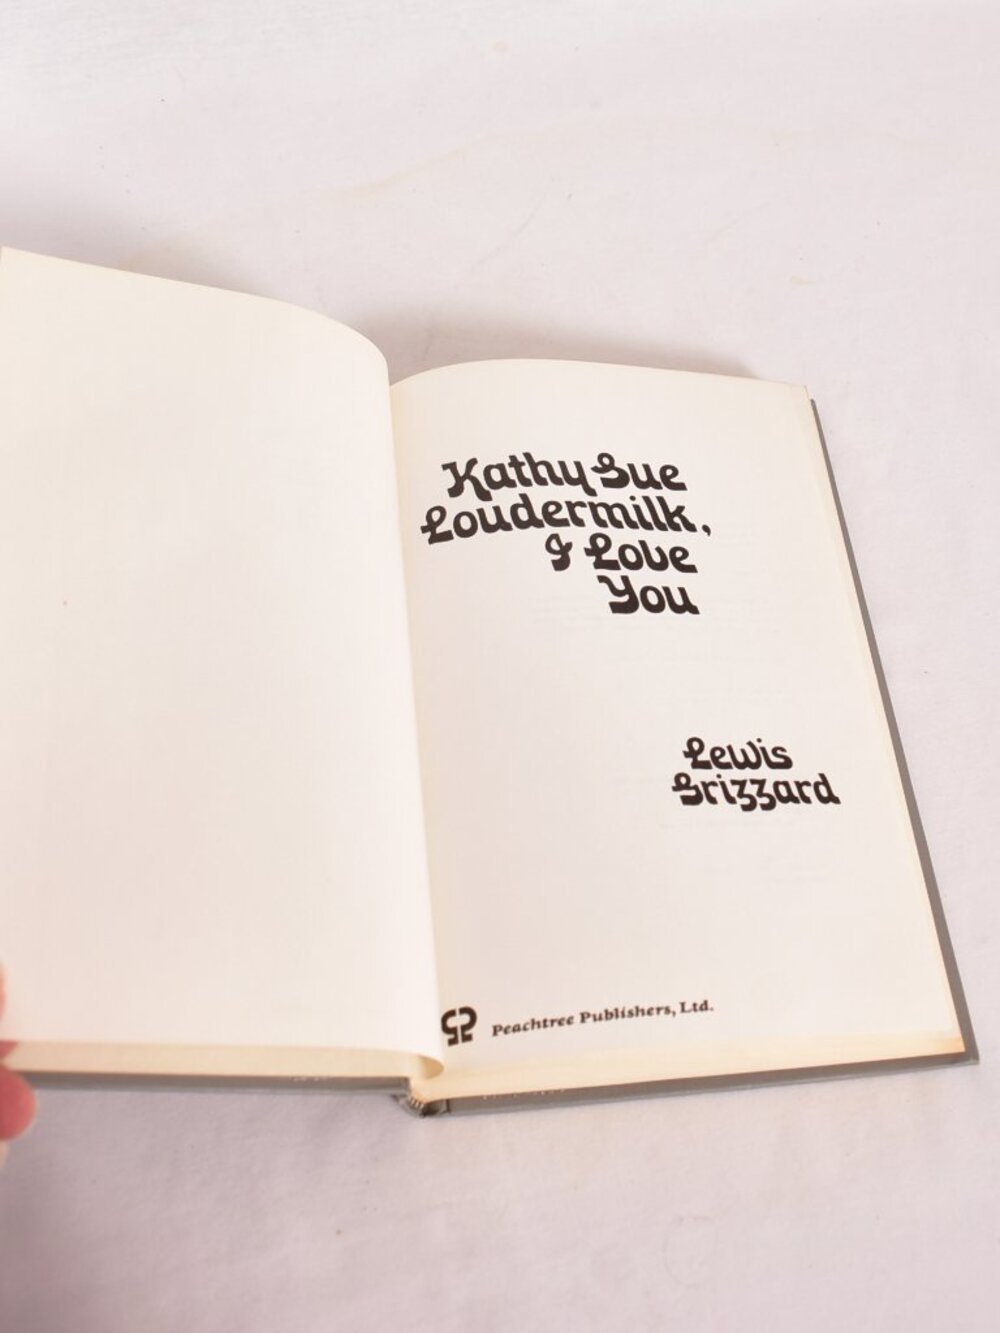 Kathy Sue
Loudermilk,
I Love
You
Lewis
Grizzard
Peachtree Publishers, Ltd.